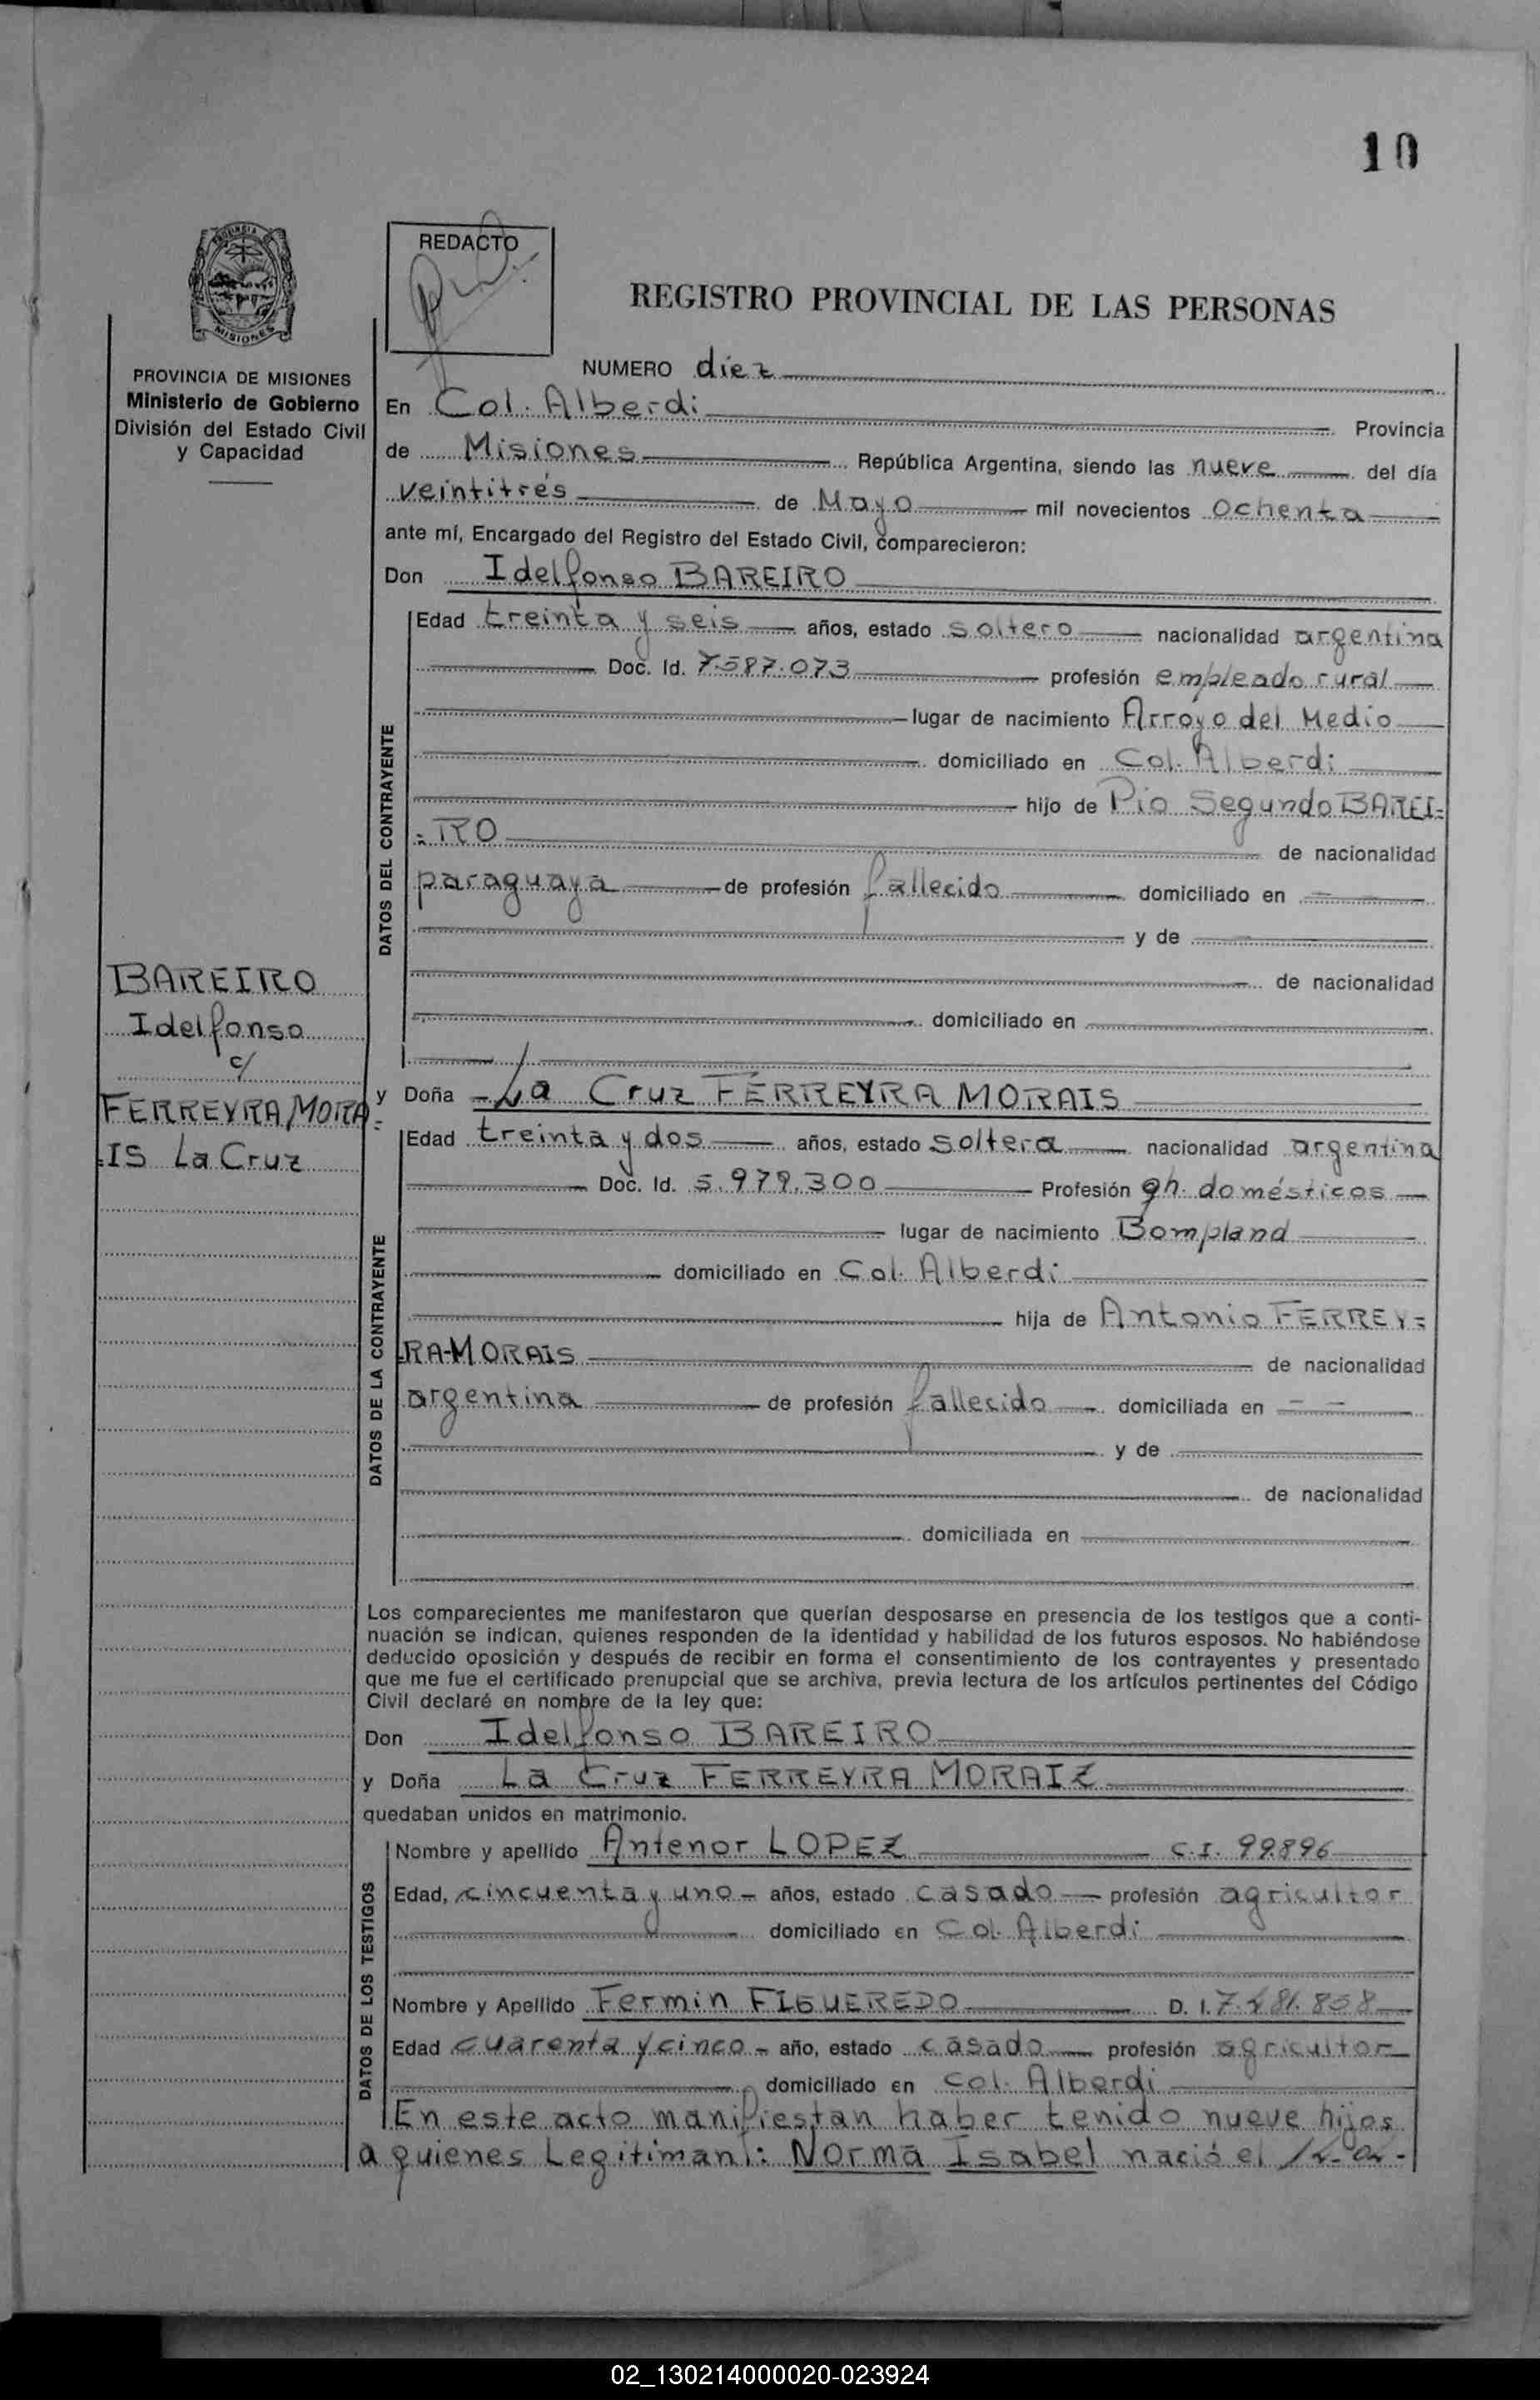 10
REDACTO
REGISTRO PROVINCIAL DE LAS PERSONAS
PROVINCIA DE MISIONES
Ministerio de Gobierno
División del Estado Civil
y Capacidad
NUMERO diez
En Col. Alberdi Provincia
de Misiones República Argentina, siendo las nueve del día
veintitrés de Mayo mil novecientos ochenta
ante mí, Encargado del Registro del Estado Civil, comparecieron:
Don Idelfonso BAREIRO
DATOS DEL CONTRAYENTE
Edad treinta y seis años, estado soltero nacionalidad argentina
Doc. Id. 7.587.073 profesión empleado rural
lugar de nacimiento Arroyo del Medio
domiciliado en Col. Alberdi
hijo de Pio Segundo BAREI=
=RO de nacionalidad
paraguaya de profesión fallecido domiciliado en
y de
de nacionalidad
domiciliado en
BAREIRO
Idelfonso
c/
FERREYRA MORA=
=IS La Cruz
y Doña La Cruz FERREYRA MORAIS
DATOS DE LA CONTRAYENTE
Edad treinta y dos años, estado soltera nacionalidad argentina
Doc. Id. 5.979.300 Profesión qh. domésticos
lugar de nacimiento Bompland
domiciliado en Col. Alberdi
hija de Antonio FERREY=
RA-MORAIS de nacionalidad
argentina de profesión fallecido domiciliada en - -
y de
de nacionalidad
domiciliada en
Los comparecientes me manifestaron que querían desposarse en presencia de los testigos que a conti-
nuación se indican, quienes responden de la identidad y habilidad de los futuros esposos. No habiéndose
deducido oposición y después de recibir en forma el consentimiento de los contrayentes y presentado
que me fue el certificado prenupcial que se archiva, previa lectura de los artículos pertinentes del Código
Civil declaré en nombre de la ley que:
Don Idelfonso BAREIRO
y Doña La Cruz FERREYRA MORAIZ
quedaban unidos en matrimonio.
DATOS DE LOS TESTIGOS
Nombre y apellido Antenor LOPEZ C.I. 99896
Edad, cincuenta y uno años, estado casado profesión agricultor
domiciliado en Col. Alberdi
Nombre y Apellido Fermin FIGUEREDO D. I.
Edad cuarenta y cinco año, estado casado profesión agricultor
domiciliado en Col. Alberdi
En este acto manifiestan haber tenido nueve hijos
a quienes Legitiman: Norma Isabel nació el
02_130214000020-023924